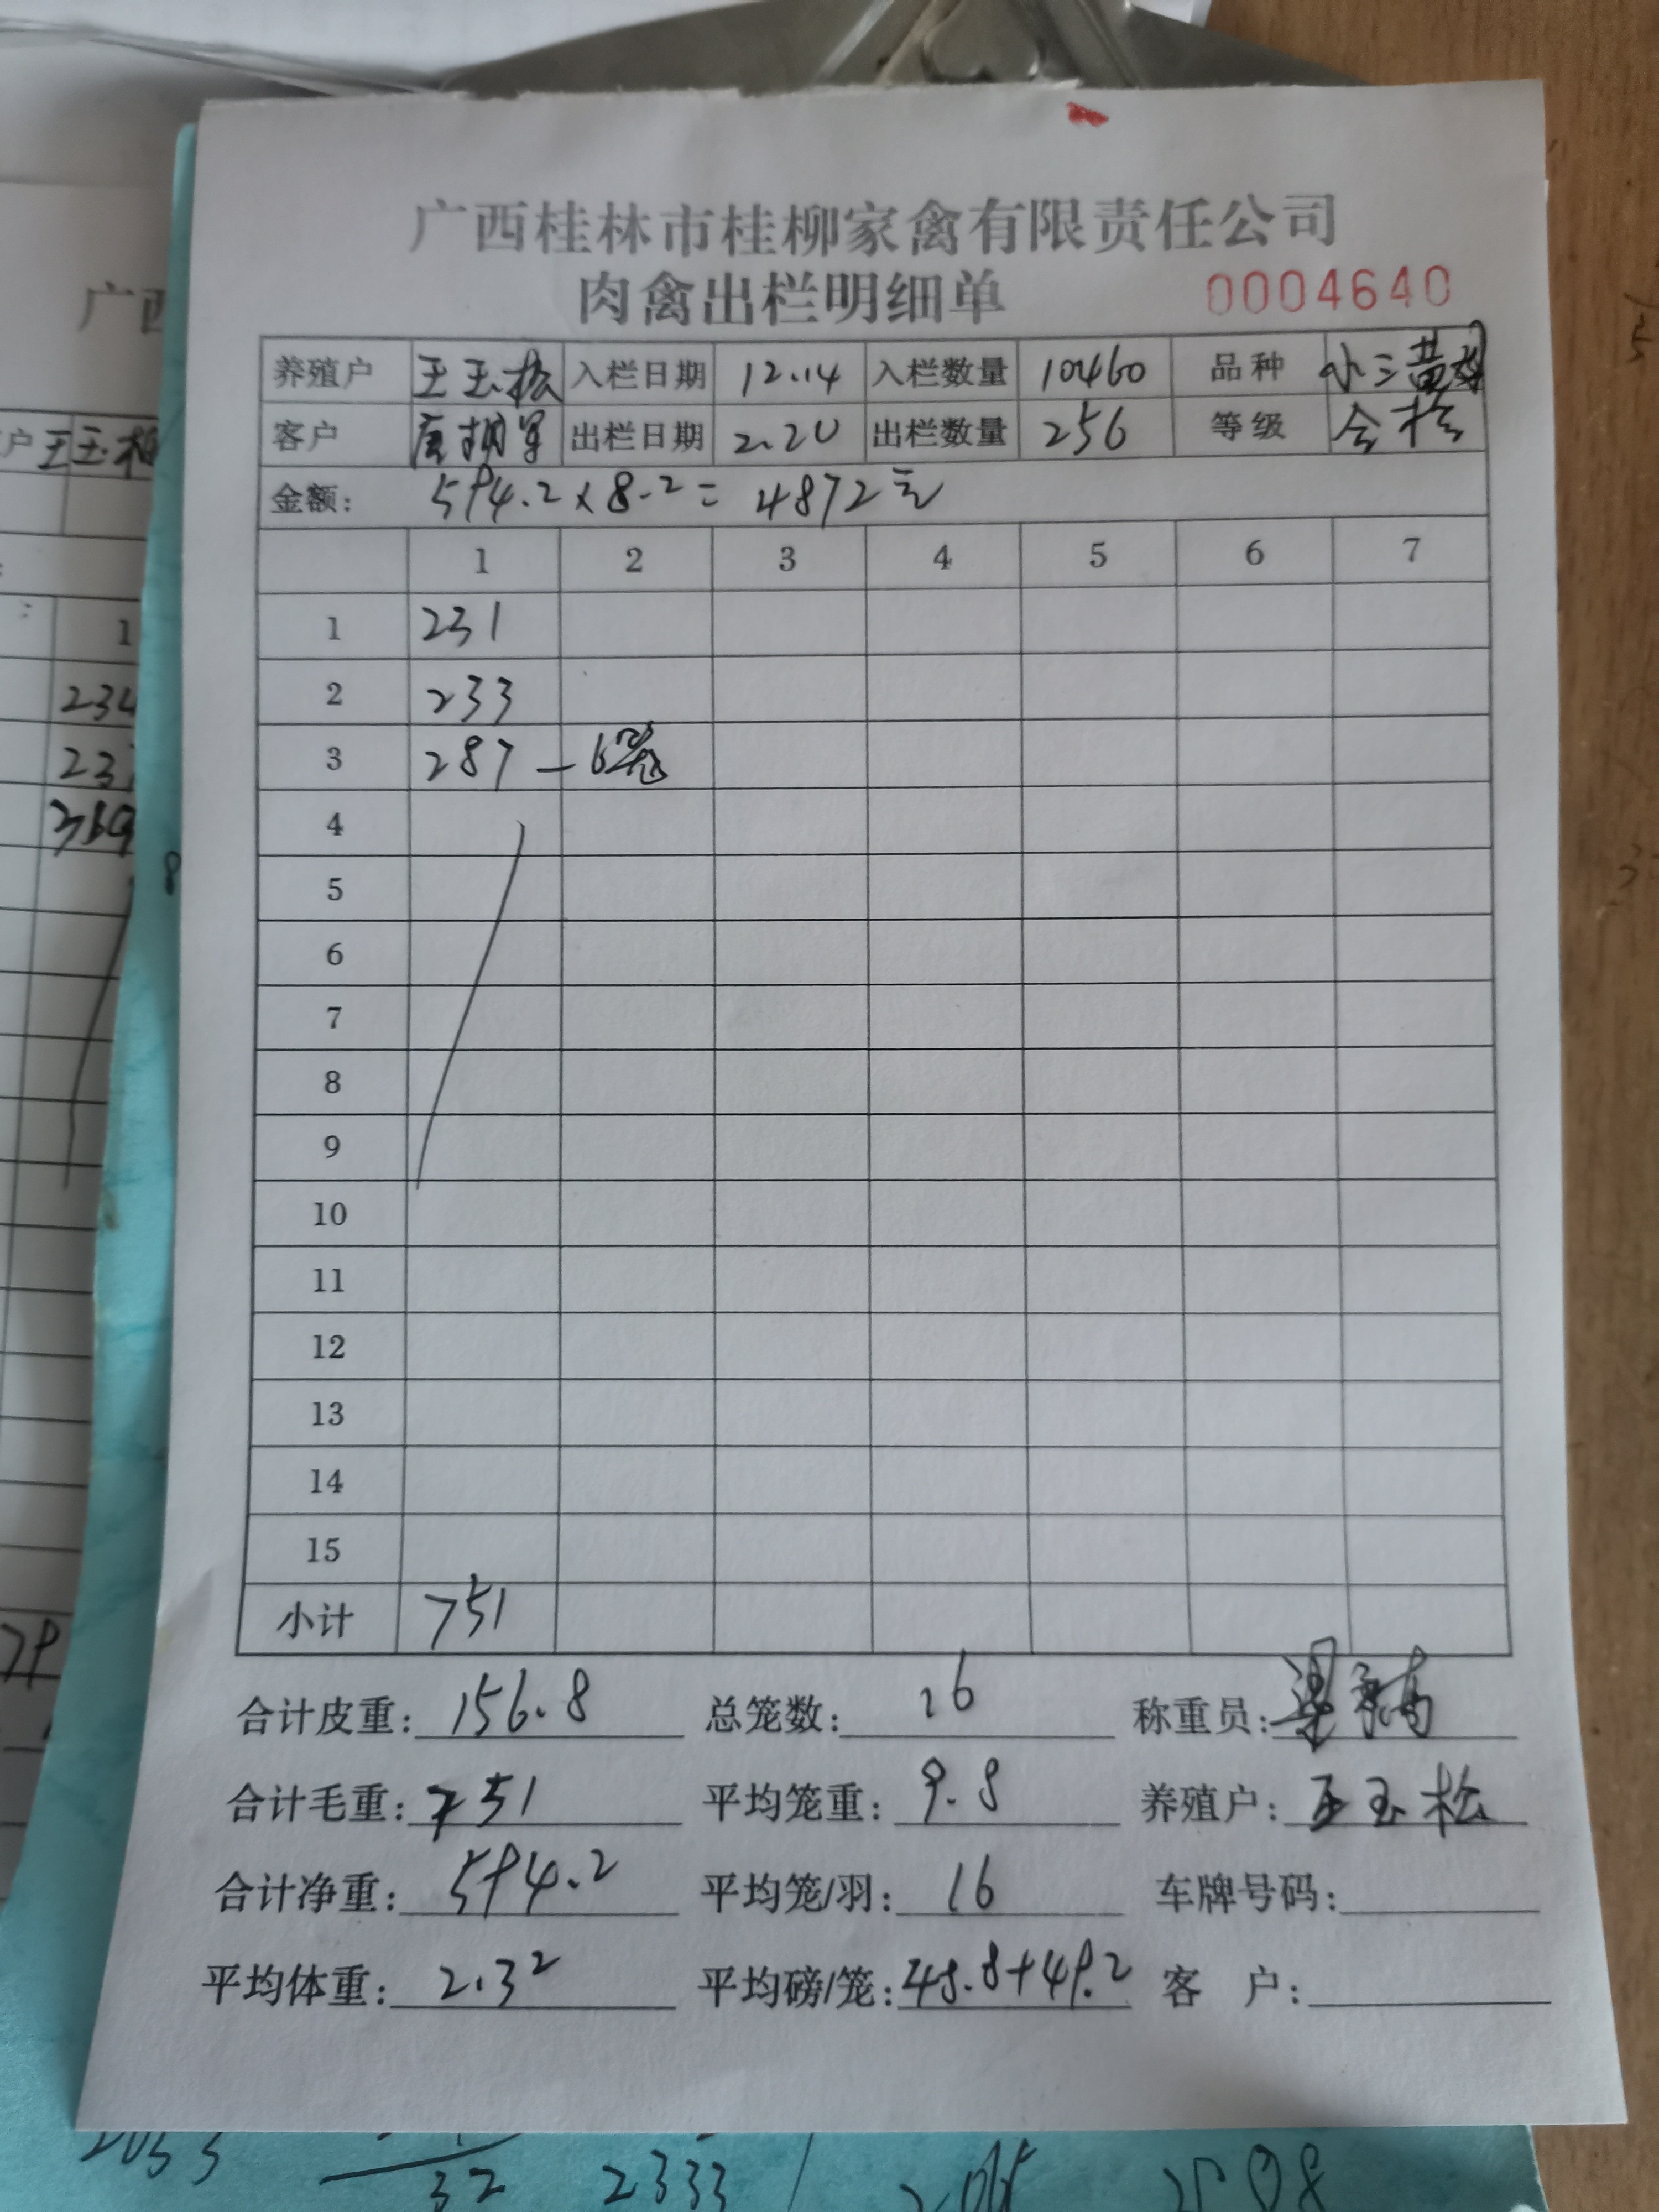 广西桂林市桂柳家禽有限责任公司
肉禽出栏明细单 0004640
养殖户 王玉松 入栏日期 12.14 入栏数量 10460 品种 小三黄
客户 唐胡军 出栏日期 2.20 出栏数量 256 等级 合格
金额: 594.2×8.2=4872元
1 2 3 4 5 6 7
1 231
2 233
3 287 — 6笼
4
5
6
7
8
9
10
11
12
13
14
15
小计 751
合计皮重: 156.8 总笼数: 16 称重员:
合计毛重: 751 平均笼重: 9.8 养殖户: 王玉松
合计净重: 594.2 平均笼/羽: 16 车牌号码:
平均体重: 2.32 平均磅/笼: 48.8+49.2 客 户:
广西
户 王玉松
1
234
237
369
8
79
2053
32
2333